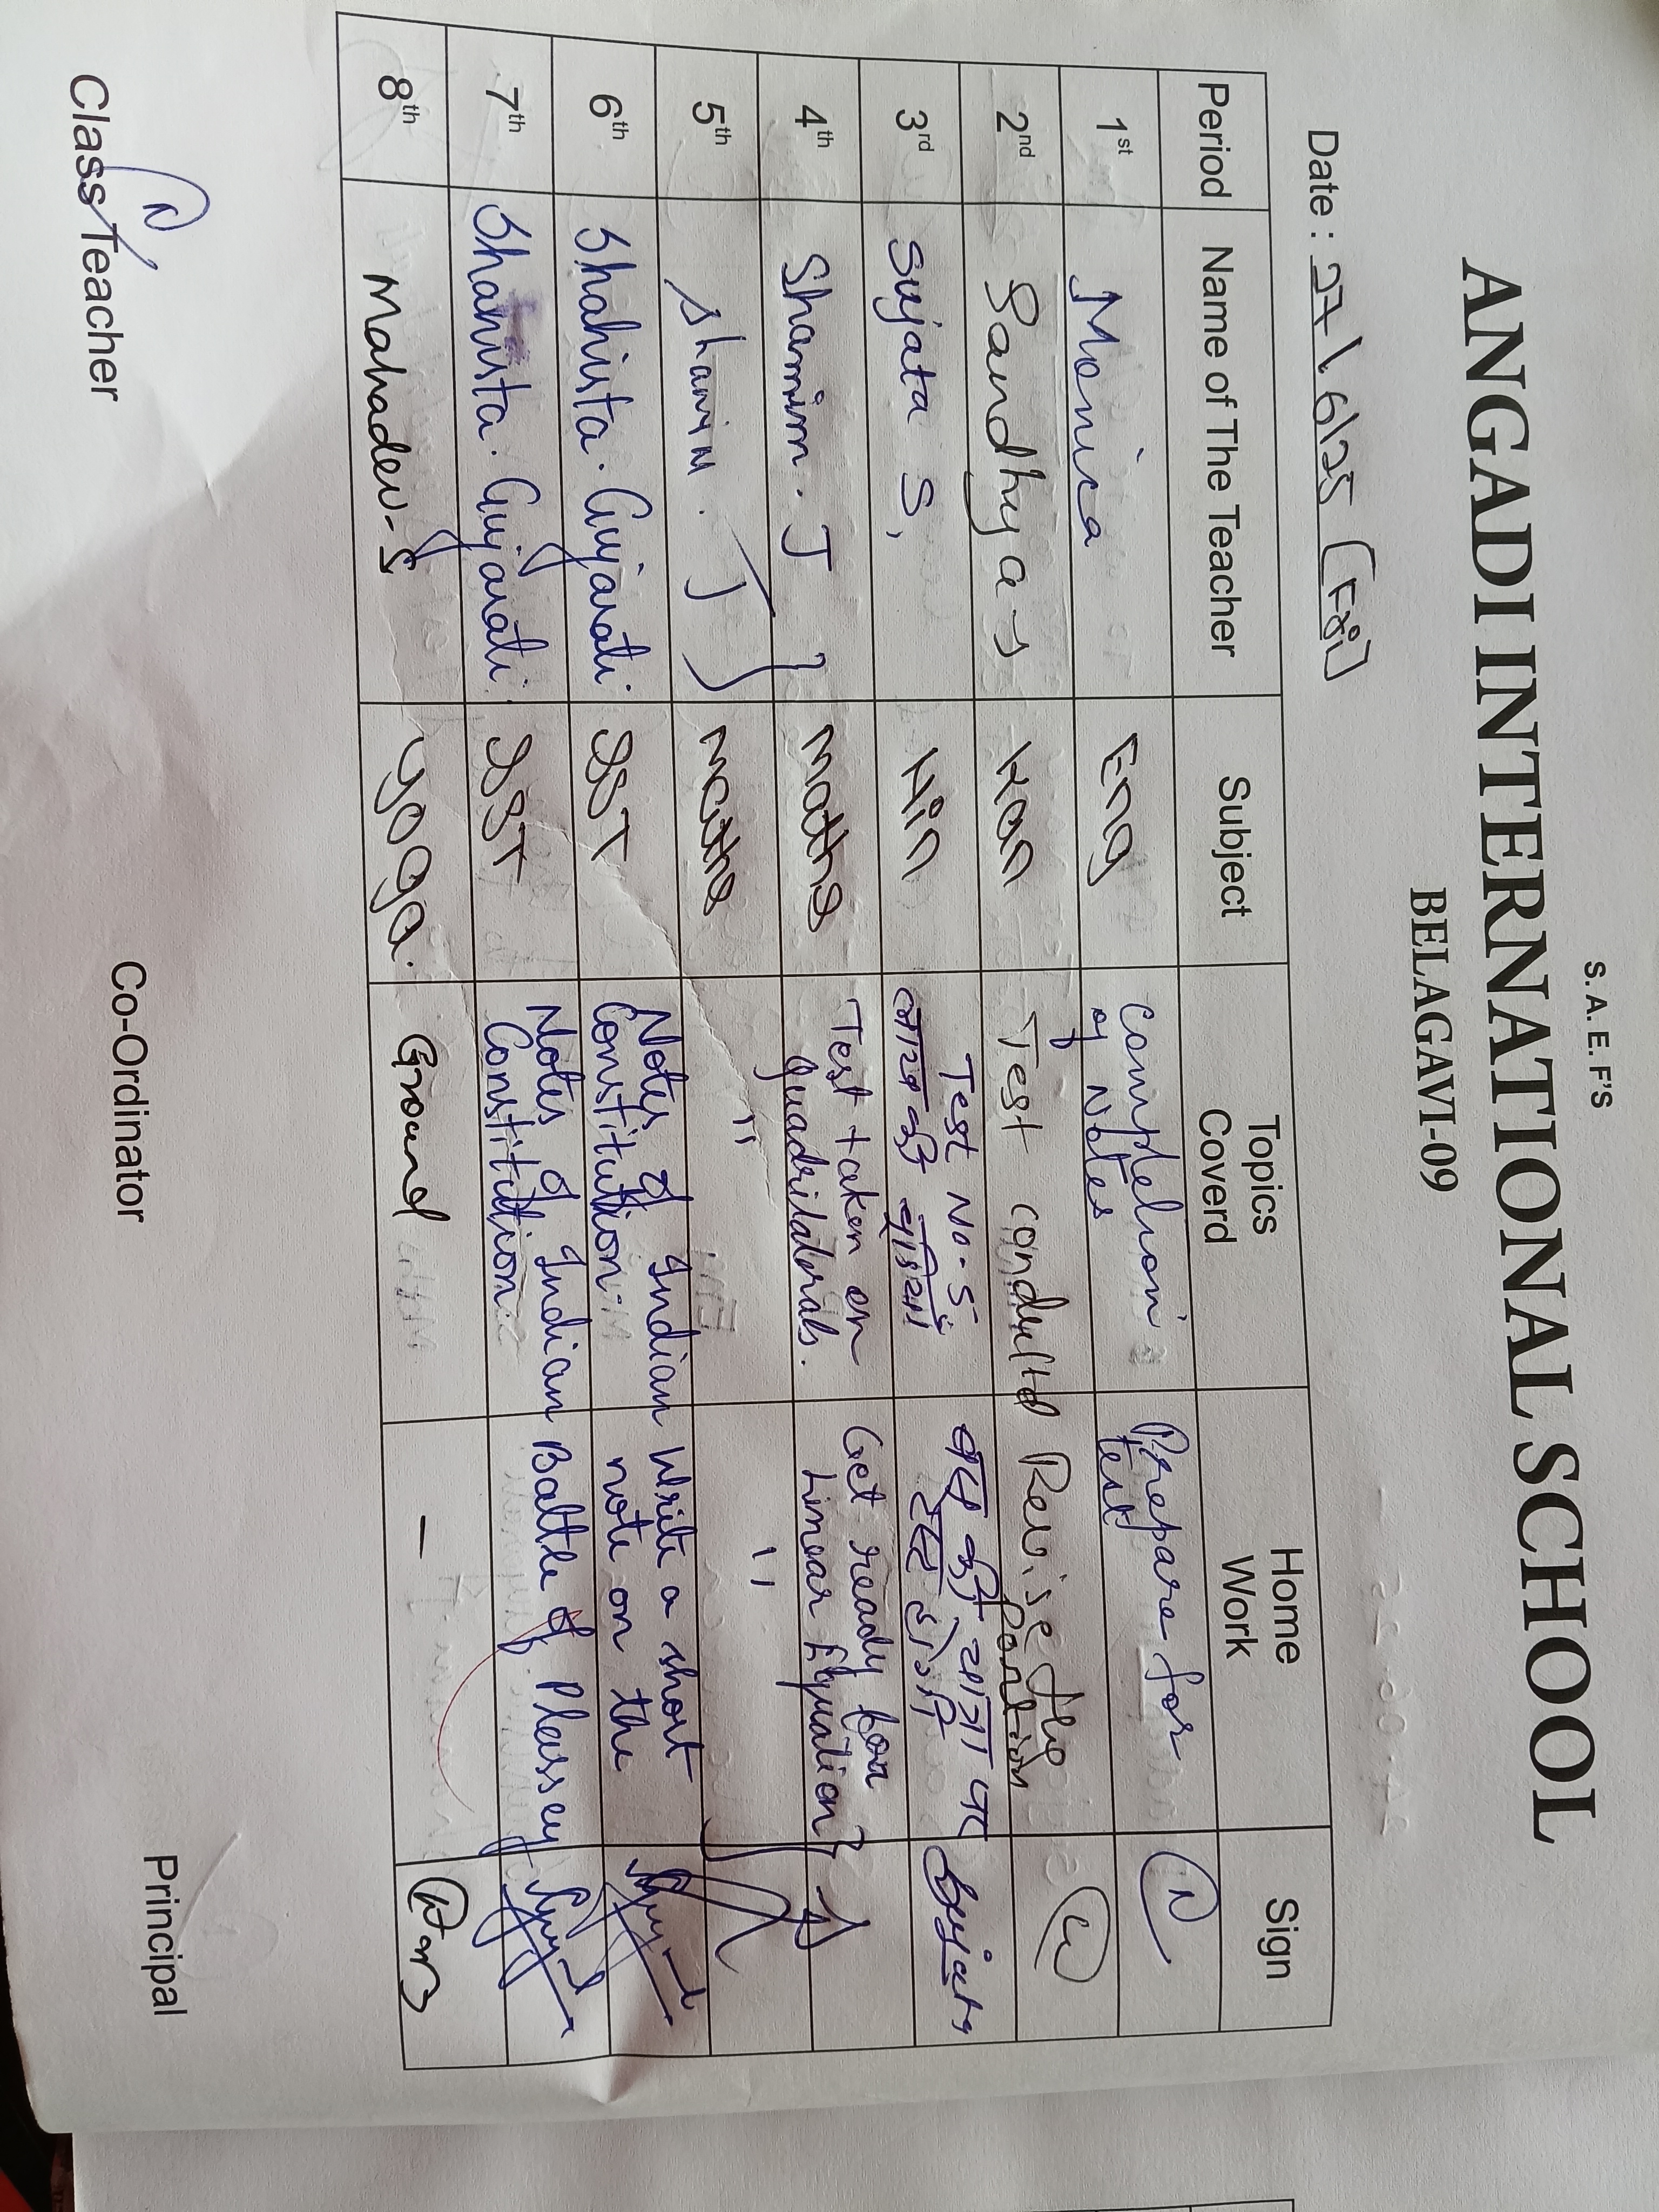 S. A. E. F'S
ANGADI INTERNATIONAL SCHOOL
BELAGAVI-09
Date : 27/6/25 (Fri)
Period Name of The Teacher Subject Topics Coverd Home Work Sign
1st Monica Eng Completion of Notes Prepare for test
2nd Sandhya Kan Test conducted Revise the Portion
3rd Sujata S, Hin Test No-5 Sujata
4th Shamim. J Maths Test taken on Quadrilaterals. Get ready for Linear Equation
5th Shamim. J Maths " "
6th Shahista. Gujarati. SST Notes of Indian Constitution. Write a short note on the
7th Shahista. Gujarati. SST Notes of Indian Constitution Battle of Plassey
8th Mahadev-S Yoga. Ground -
Class Teacher Co-Ordinator Principal